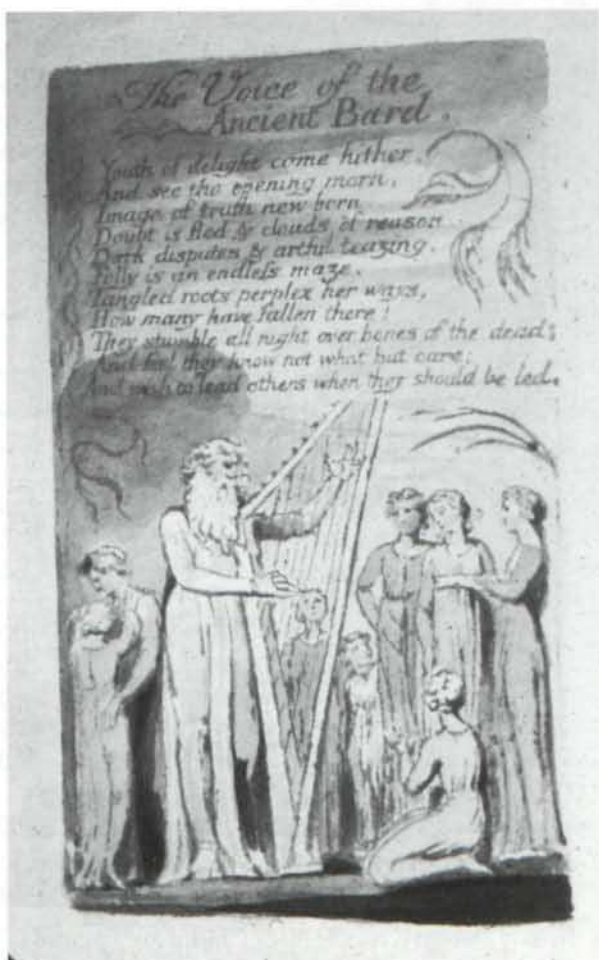 The Voice of the
Ancient Bard.
Youth of delight come hither.
And see the opening morn,
Image of truth new born
Doubt is fled & clouds of reason
Dark disputes & artful teazing.
Folly is an endless maze.
Tangled roots perplex her ways,
How many have fallen there!
They stumble all night over bones of the dead;
And feel they know not what but care;
And wish to lead others when they should be led.